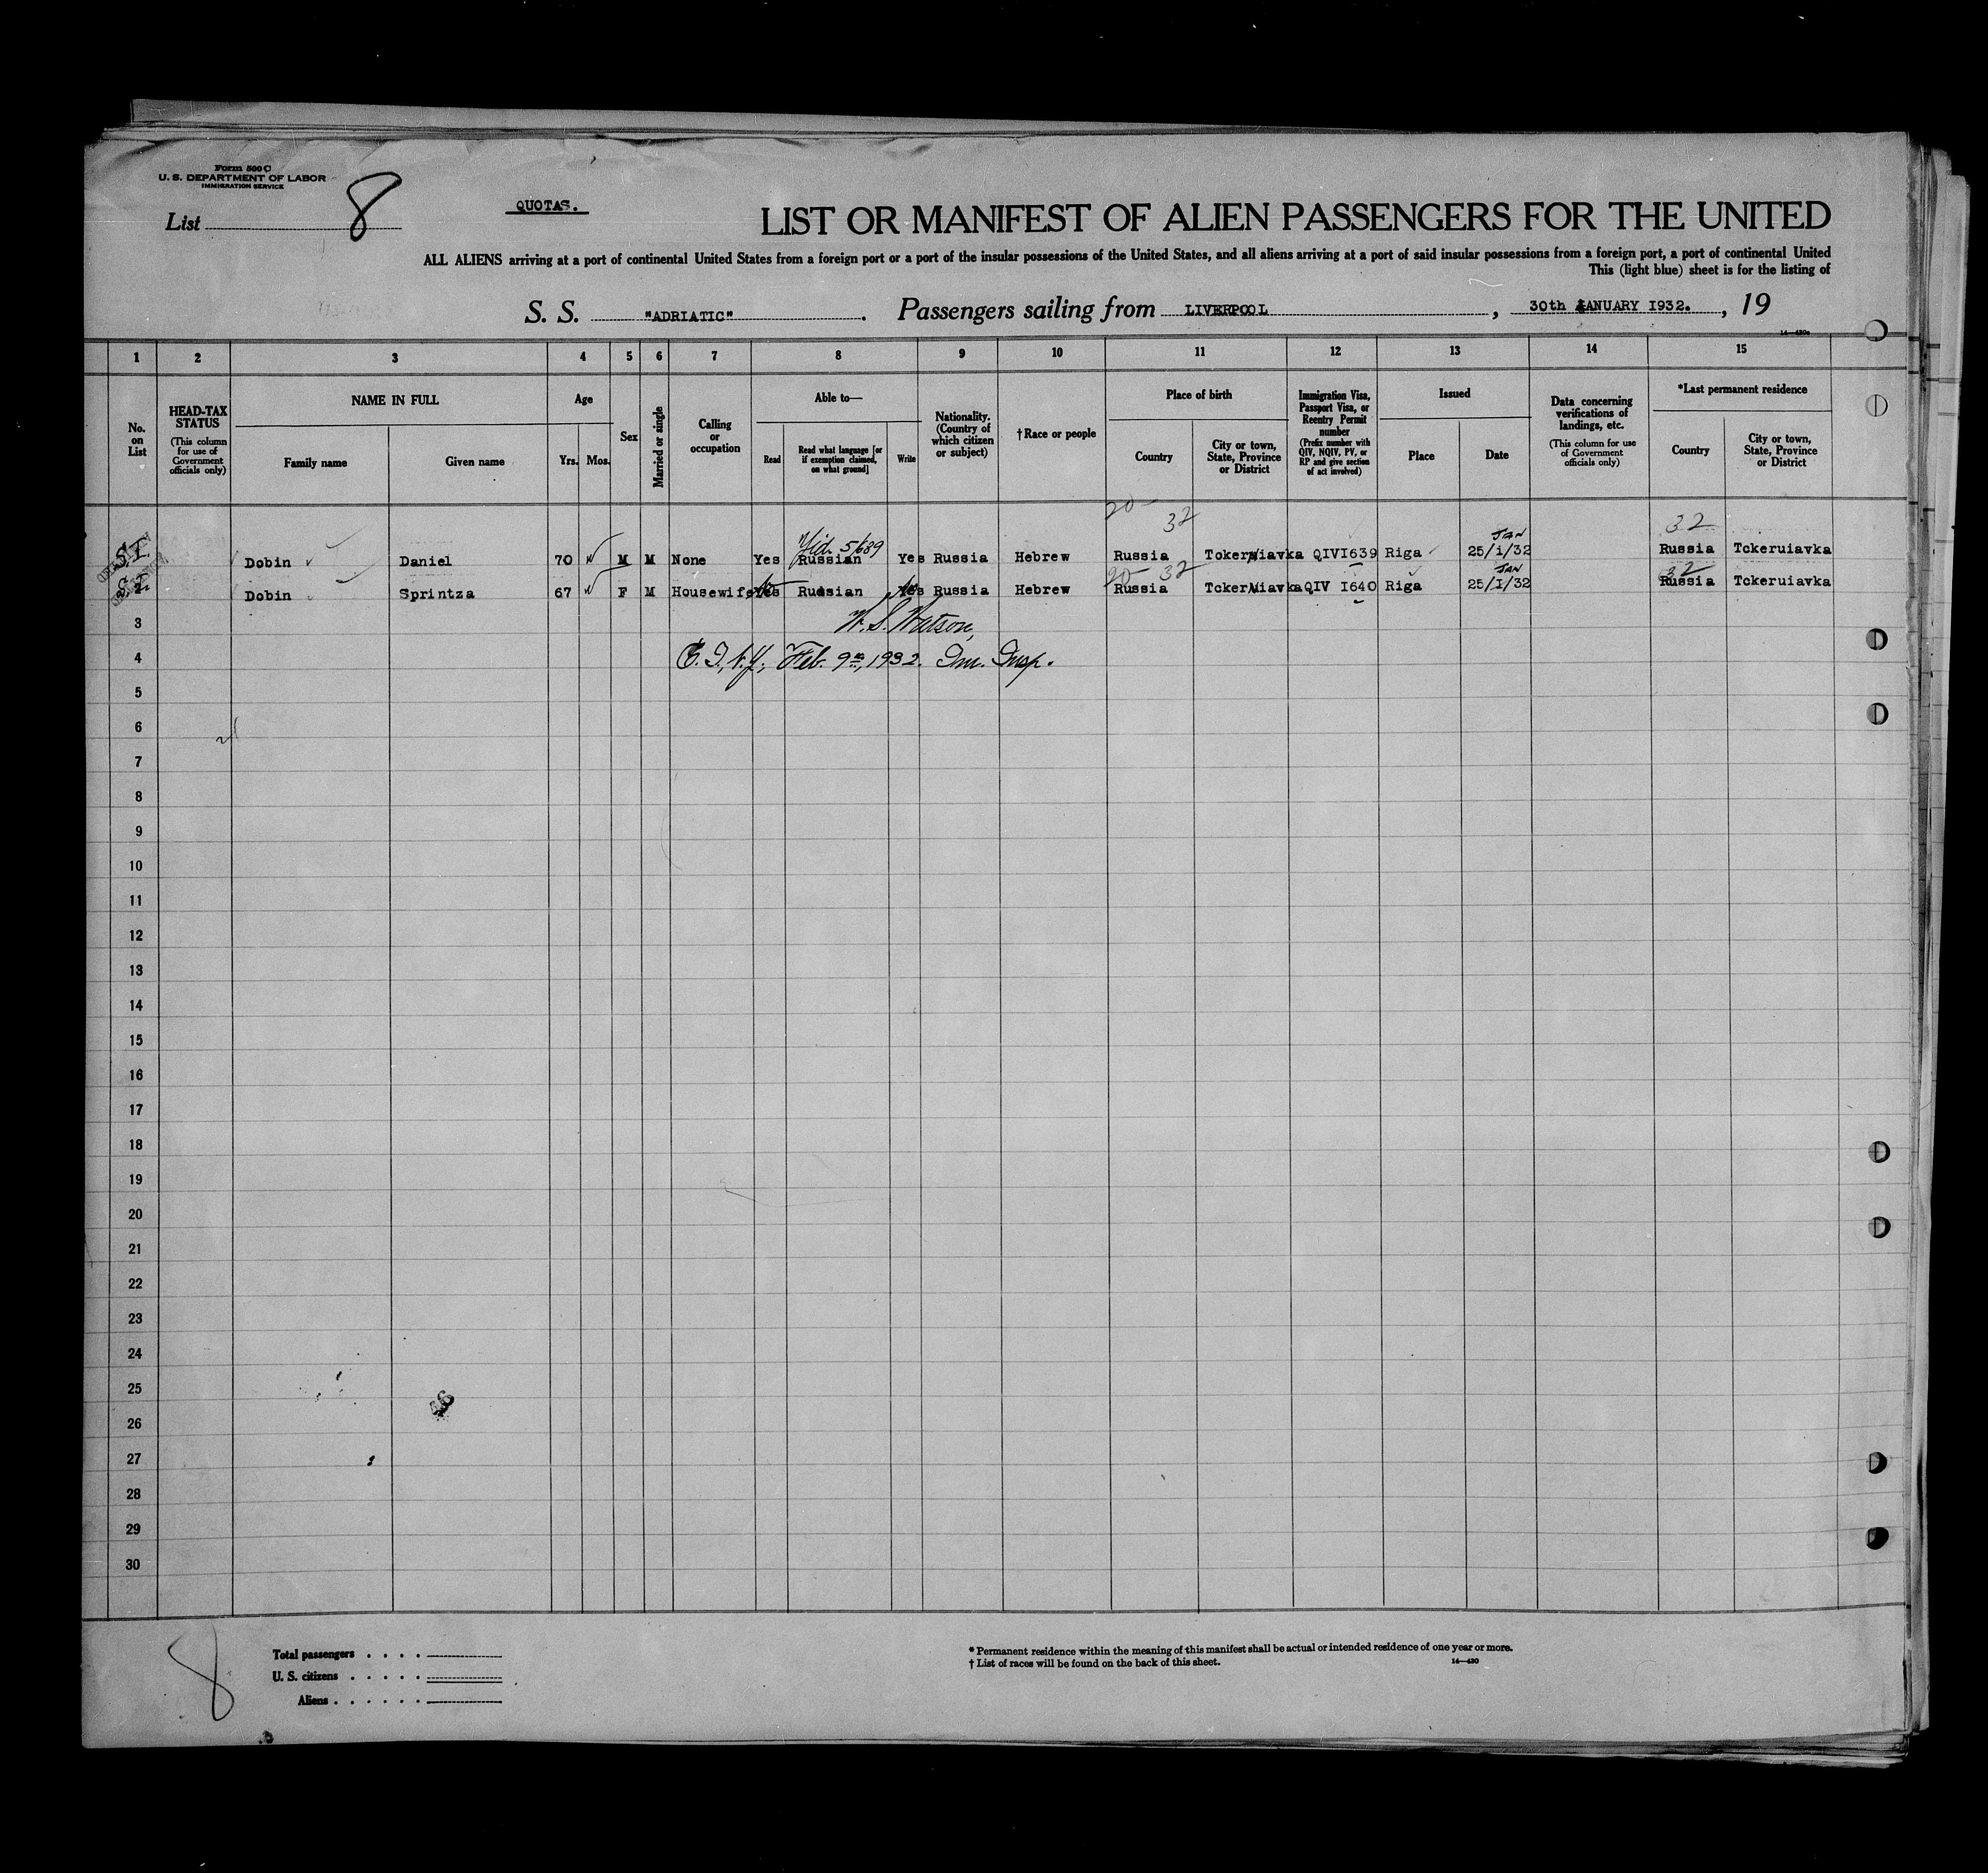 Form 500 C
U. S. DEPARTMENT OF LABOR
IMMIGRATION SERVICE
List 8
QUOTAS.
LIST OR MANIFEST OF ALIEN PASSENGERS FOR THE UNITED
ALL ALIENS arriving at a port of continental United States from a foreign port or a port of the insular possessions of the United States, and all aliens arriving at a port of said insular possessions from a foreign port, a port of continental United
This (light blue) sheet is for the listing of
S. S. "ADRIATIC". Passengers sailing from LIVERPOOL, 30th JANUARY 1932., 19
14—430c
1 2 3 4 5 6 7 8 9 10 11 12 13 14 15
No. on List
HEAD-TAX STATUS
(This column for use of Government officials only)
NAME IN FULL
Family name Given name
Age
Yrs. Mos.
Sex
Married or single
Calling or occupation
Able to—
Read
Read what language [or if exemption claimed, on what ground]
Write
Nationality. (Country of which citizen or subject)
†Race or people
Place of birth
Country
City or town, State, Province or District
Immigration Visa, Passport Visa, or Reentry Permit number
(Prefix number with QIV, NQIV, PV, or RP and give section of act involved)
Issued
Place Date
Data concerning verifications of landings, etc.
(This column for use of Government officials only)
*Last permanent residence
Country
City or town, State, Province or District
20 32 JAN 32
S.I. Yid. 5/689
Dobin Daniel 70 M M None Yes Russian Yes Russia Hebrew Russia QIVI639 Riga 25/1/32 Russia Tckeruiavka
20 32 JAN 32
S.I. Dobin Sprintza 67 F M Housewife Yes Russian Yes Russia Hebrew Russia QIV I640 Riga 25/I/32 Russia Tckeruiavka
3 W. S. Watson,
4 E. I., N. Y., Feb. 9th, 1932. Im. Insp.
5
6
7
8
9
10
11
12
13
14
15
16
17
18
19
20
21
22
23
24
25
26
27
28
29
30
8
Total passengers . . . .
U. S. citizens . . . . .
Aliens . . . . . .
* Permanent residence within the meaning of this manifest shall be actual or intended residence of one year or more.
† List of races will be found on the back of this sheet.
14—430